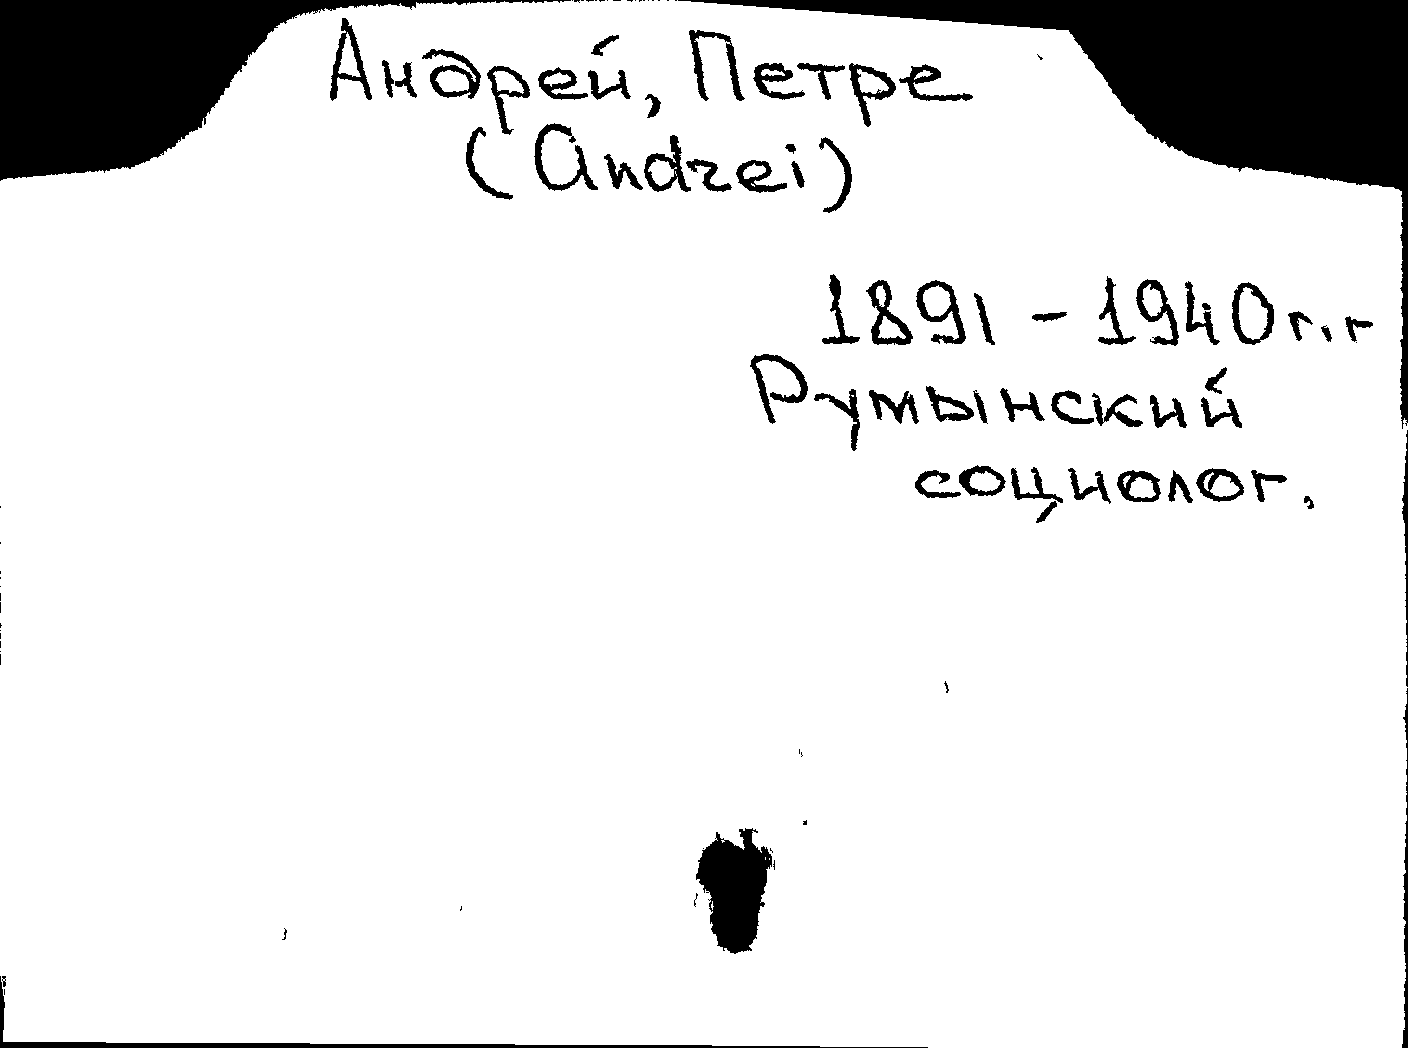 Андрей, Петре
(Andrei)
1891 - 1940 г.г
Румынский
социолог.